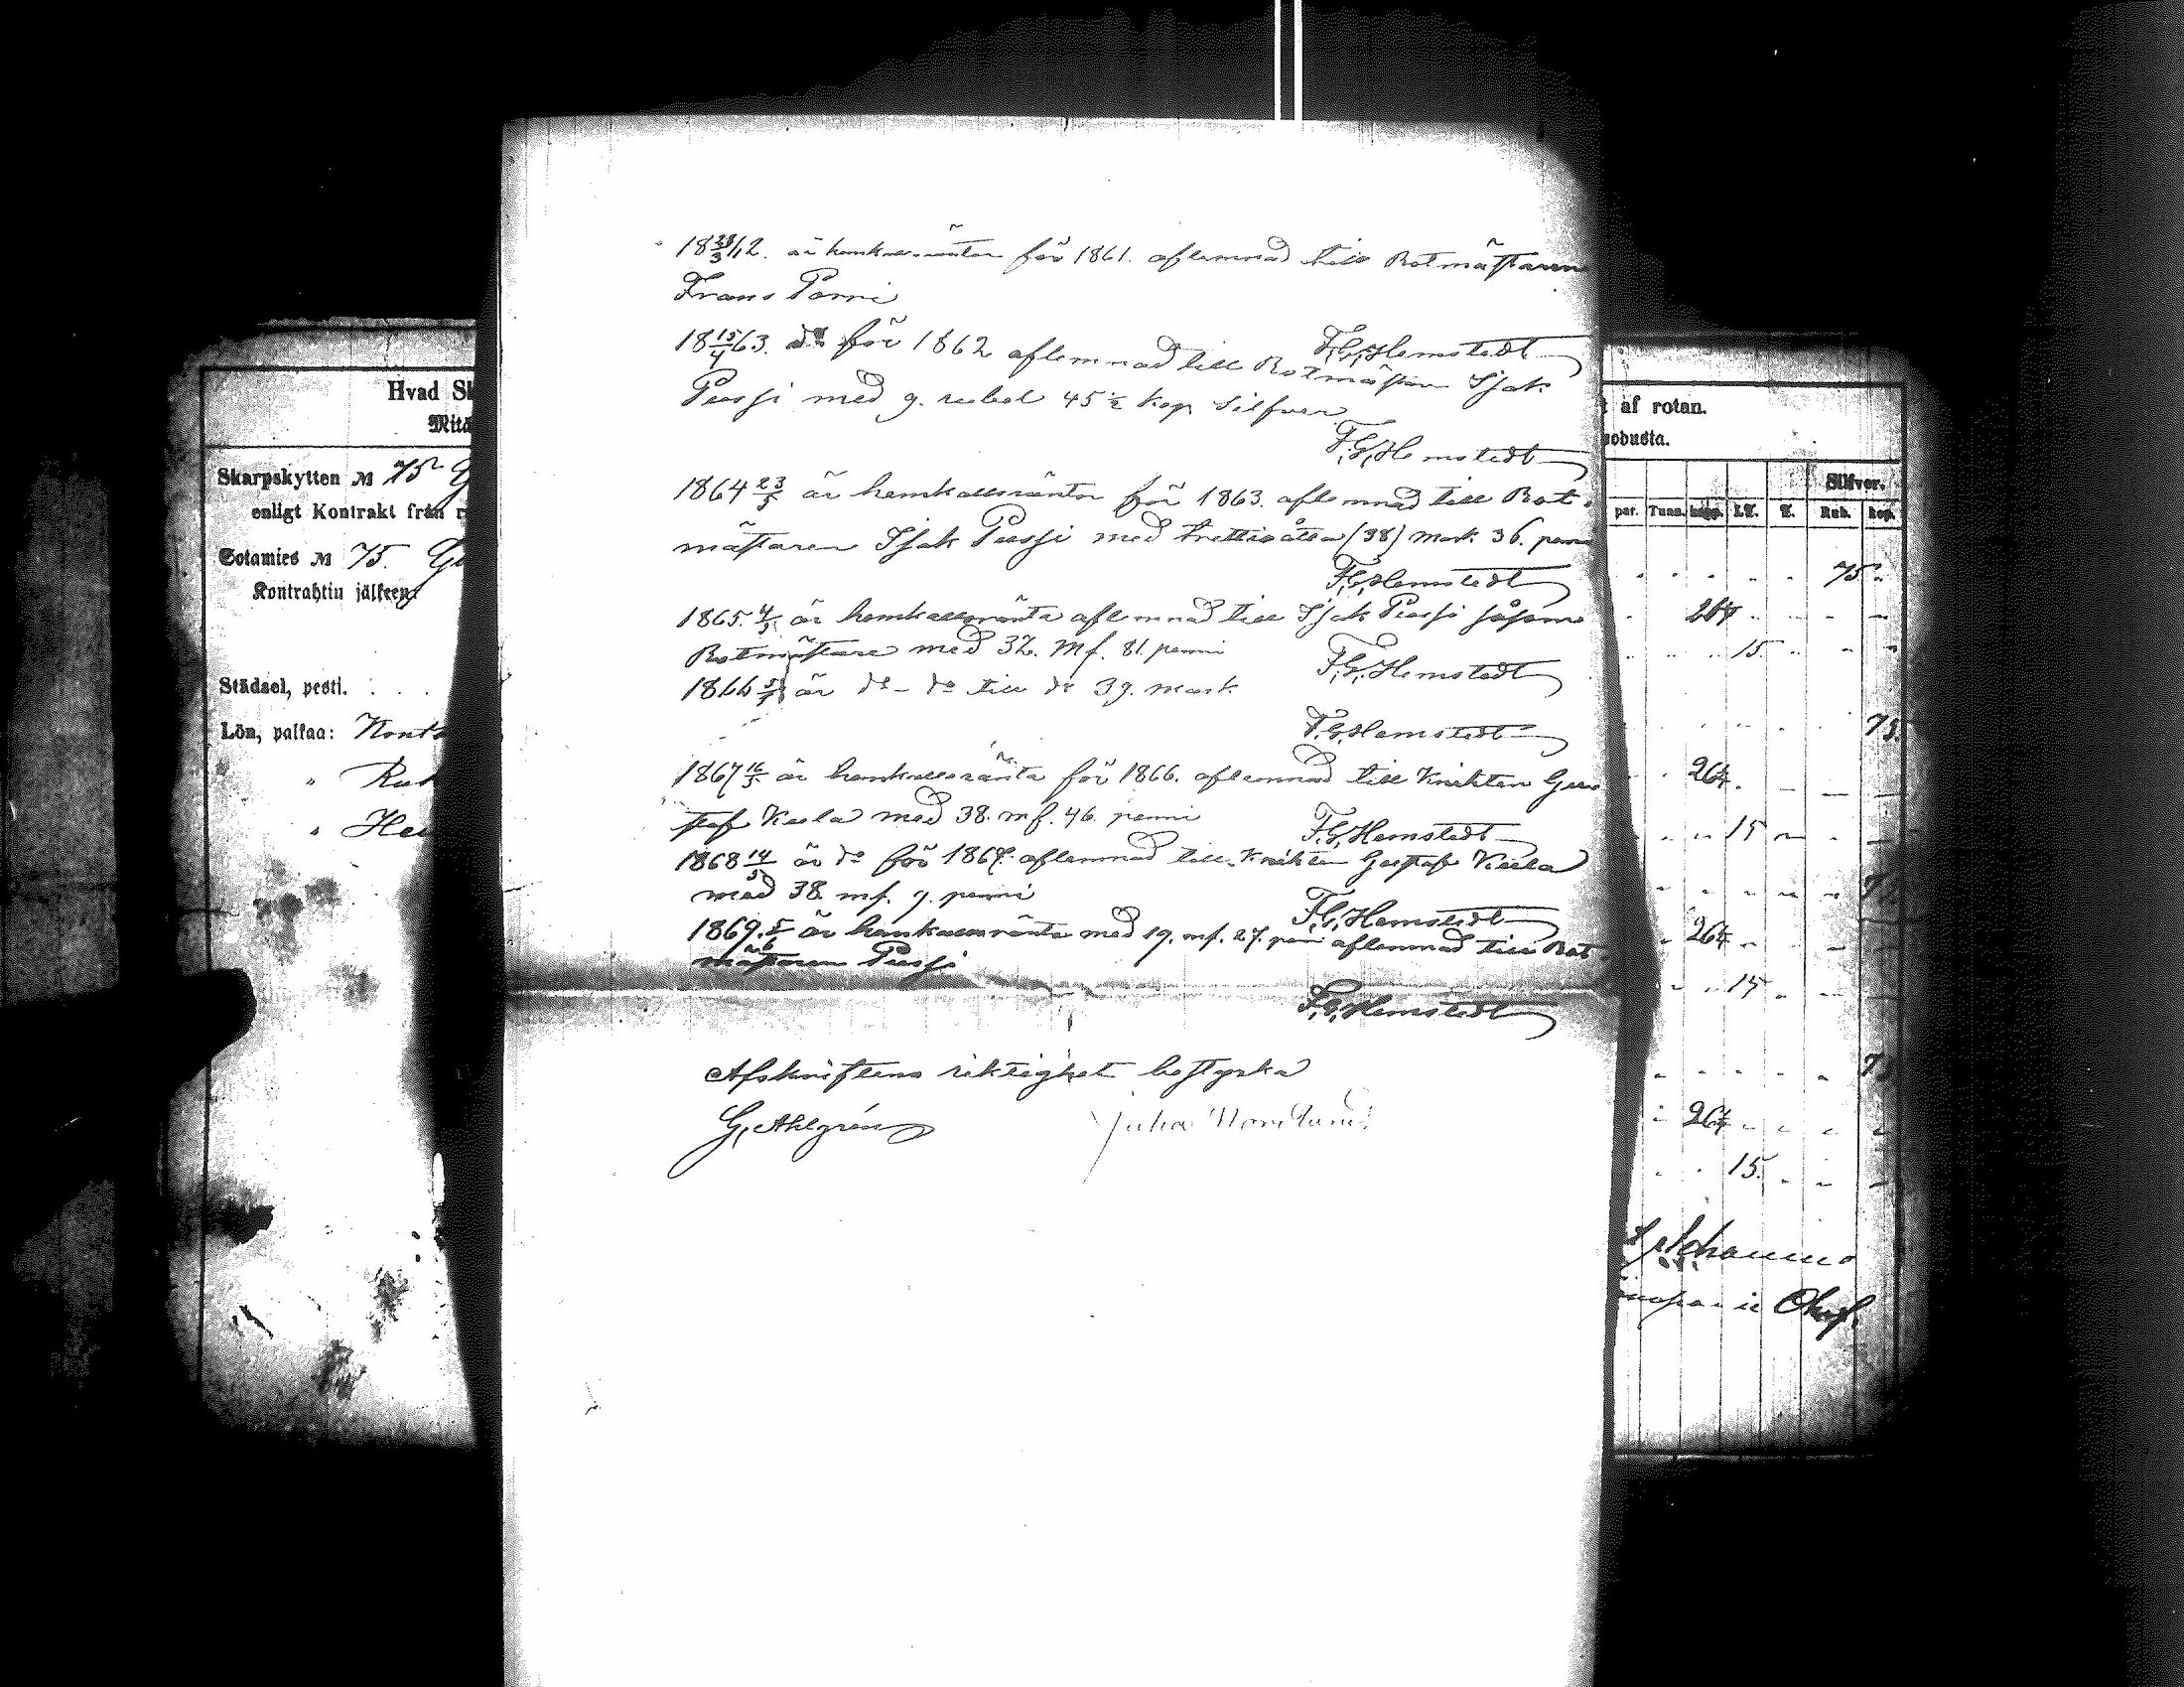 18 28/3 62. är hemkallsräntan för 1861. aflemnad till Rotmästaren
Frans Pomi
F.G. Hemstedt
18 15/4 63. do för 1862 aflemnad till Rotmästaren Isak
Pussi med 9. rubel 45 1/2 kop Silfver
F.G. Hemstedt
1864 23/5 är hemkallsräntan för 1863. aflemnad till Rot-
mästaren Isak Pussi med trettioåtta (38) mark. 36. penni
F.G. Hemstedt
1865. 4/5 är hemkallsränta aflemnad till Isak Pussi såsom
Rotmästare med 32. Mf. 81. penni
F.G. Hemstedt
1866 är do - do till do 39. mark
F.G. Hemstedt
1867 16/5 är hemkallsränta för 1866. aflemnad till Knikten Gus
staf Keela med 38. mf. 46. penni
F.G. Hemstedt
1868 14/5 är do för 1867. aflemnad till Knikten Gustaf Keela
med 38. mf. 9. penni
F.G. Hemstedt
1869. 5/6 är hemkallsränta med 19. mf. 27. peni aflemnad till Rot-
mästaren Pussi
F.G. Hemstedt
Afskriftens riktighet bestyrka
G. Ahlgrén Juha Nordlund
Hvad Sk
Mitä
Skarpskytten № 75 G
enligt Kontrakt från r
Sotamies № 75. Gu
Kontrahtin jälkeen
Städsel, pesti. . . .
Lön, palkaa: Kont
" Ruk
" Hei
t af rotan.
uodusta.
Silfver.
par. Tunn. kapp. L℔. ℔. Rub. kop.
75
264
15
75
264
15
264
15
75
264
15.